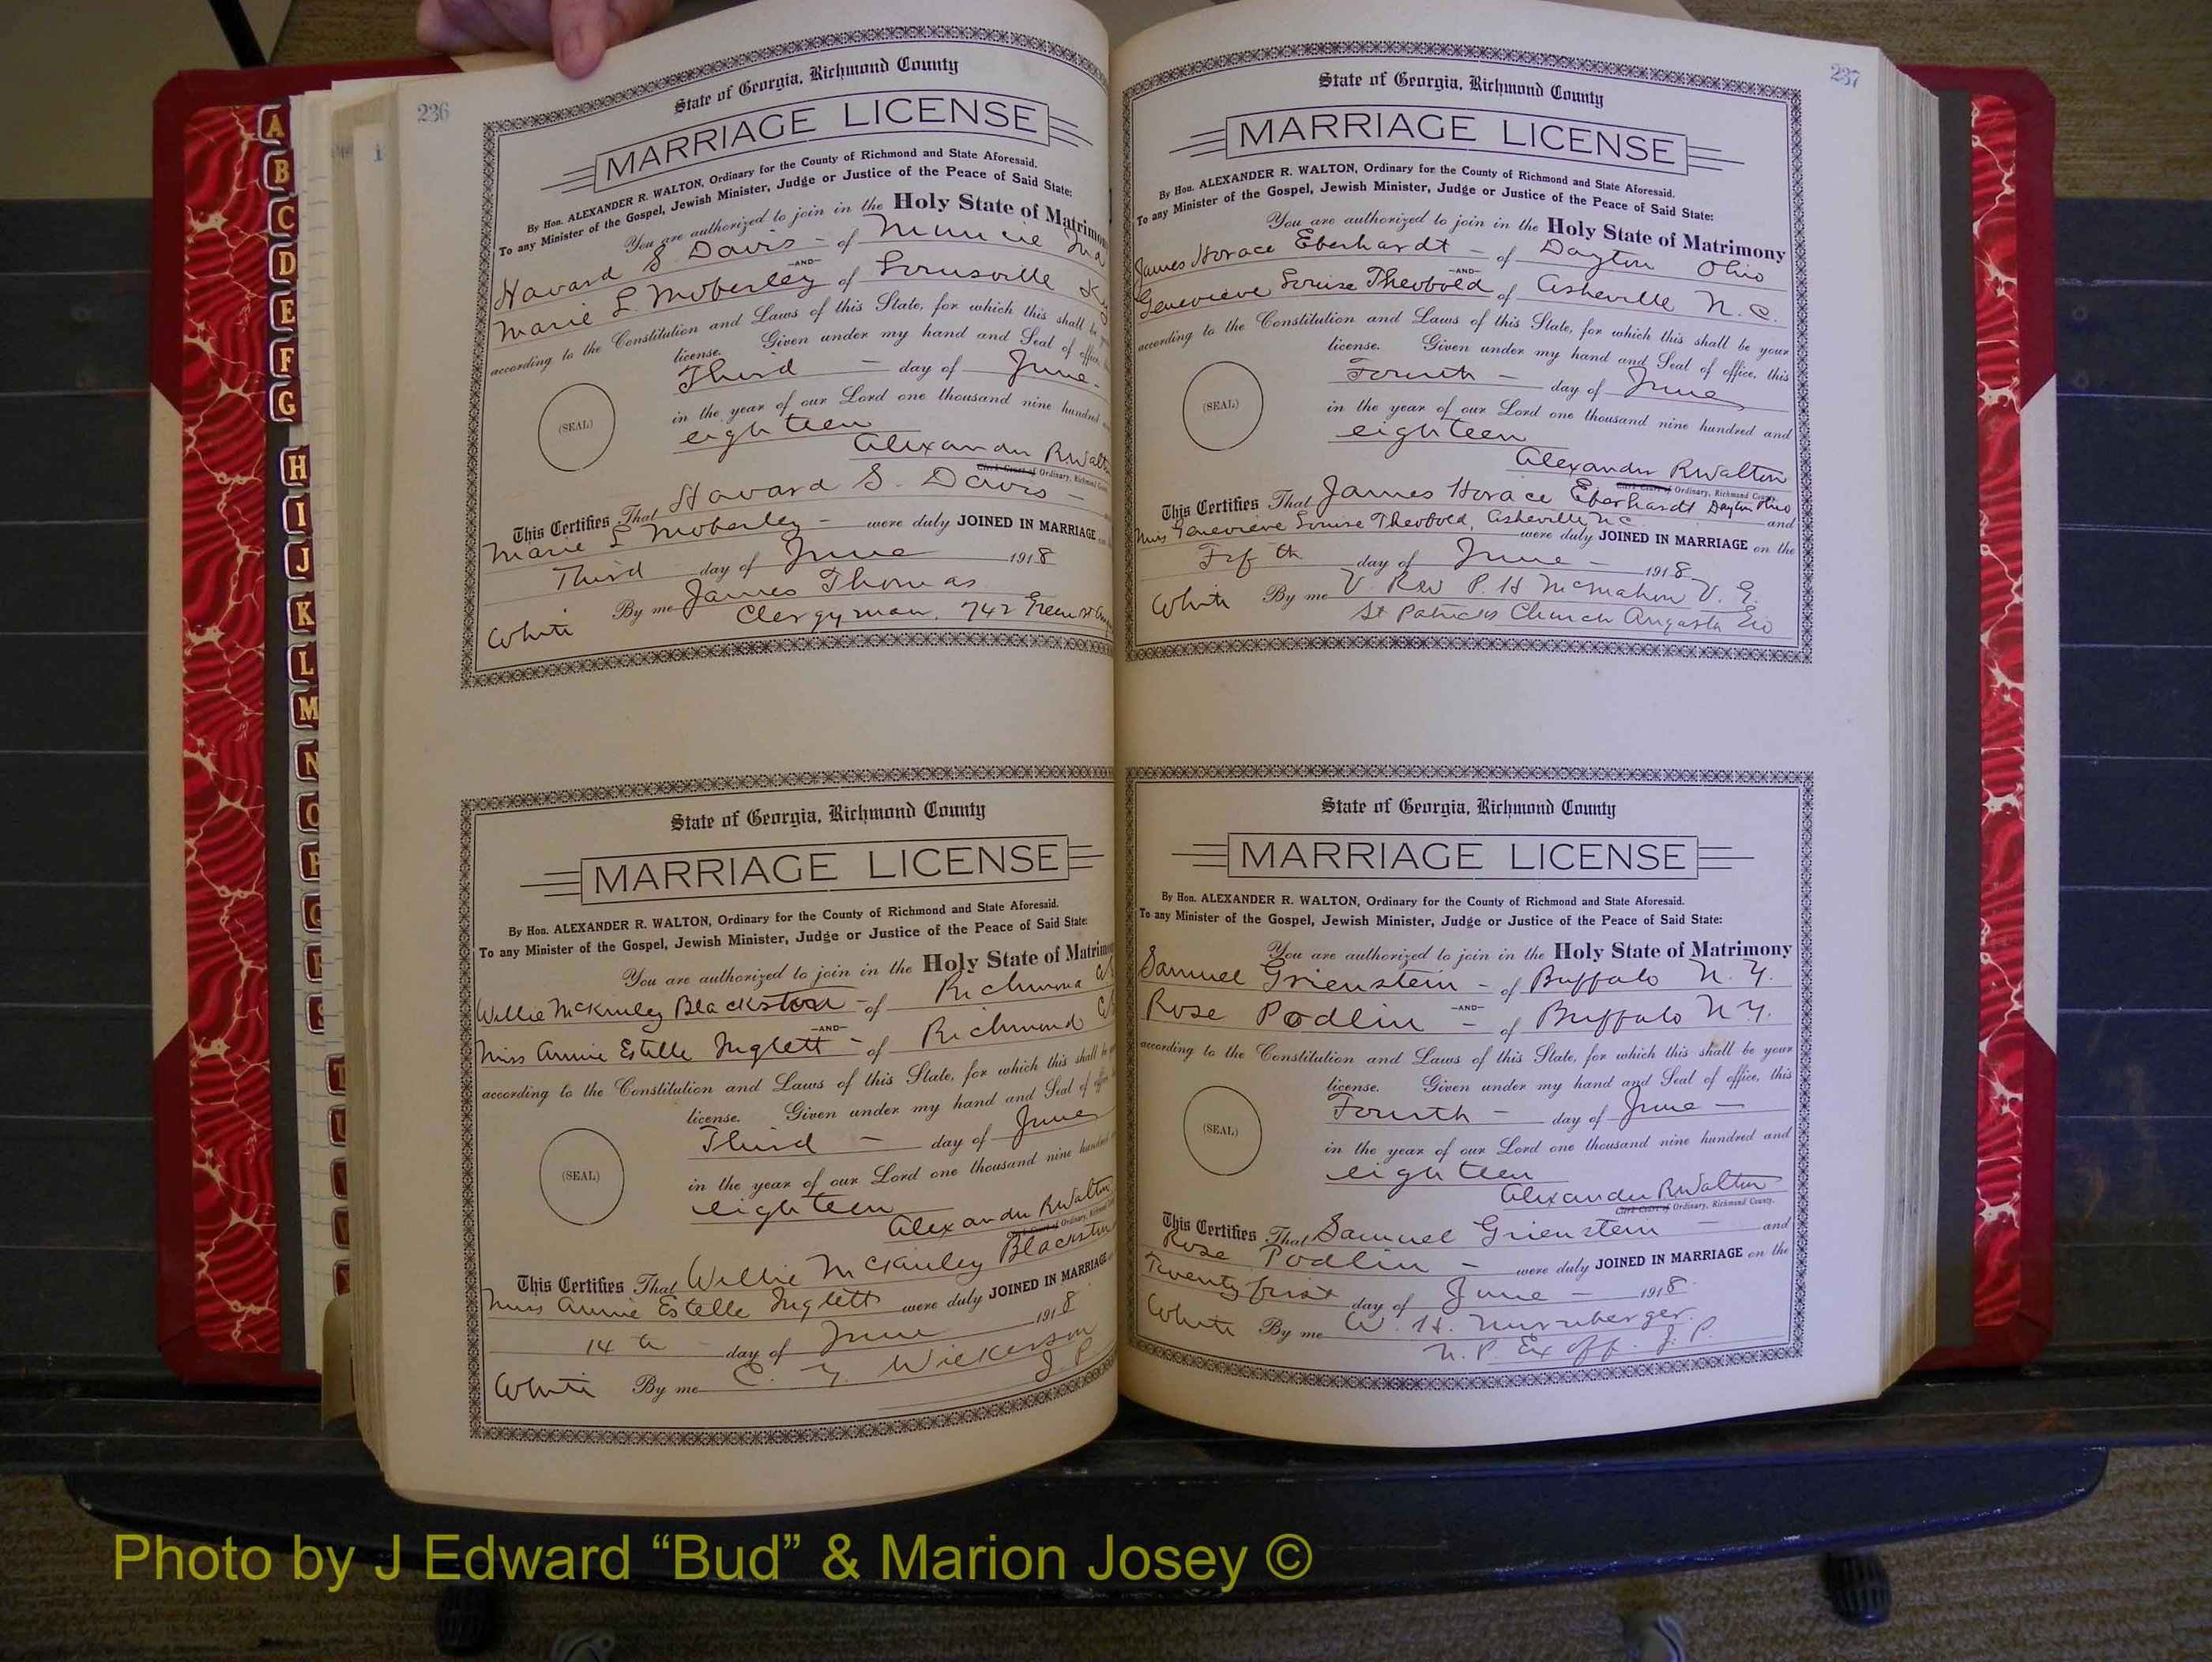 236
State of Georgia, Richmond County
MARRIAGE LICENSE
By Hon. ALEXANDER R. WALTON, Ordinary for the County of Richmond and State Aforesaid.
To any Minister of the Gospel, Jewish Minister, Judge or Justice of the Peace of Said State:
You are authorized to join in the Holy State of Matrimon
Havard S Davis - of Muncie Ind
—AND—
Marie L. Moberley of Louisville Ky
according to the Constitution and Laws of this State, for which this shall be
license. Given under my hand and Seal of office,
Third — day of June -
in the year of our Lord one thousand nine hundred
(SEAL)
eighteen
Alexander R Walton
Clerk Court of Ordinary, Richmond
This Certifies That Havard S. Davis -
Marie L Moberley - were duly JOINED IN MARRIAGE
Third day of June 1918
White By me James Thomas
Clergyman, 742 Green st
State of Georgia, Richmond County
MARRIAGE LICENSE
By Hon. ALEXANDER R. WALTON, Ordinary for the County of Richmond and State Aforesaid.
To any Minister of the Gospel, Jewish Minister, Judge or Justice of the Peace of Said State:
You are authorized to join in the Holy State of Matrimon
Willie McKinley Blackston - of Richmond
—AND—
Miss Annie Estelle Inglett - of Richmond
according to the Constitution and Laws of this State, for which this shall be
license. Given under my hand and Seal of office
Third — day of June
in the year of our Lord one thousand nine hundred
(SEAL)
eighteen
Alexander R Walton
Clerk Court of Ordinary, Richmond
This Certifies That Willie McKinley Blackston
Miss Annie Estelle Inglett were duly JOINED IN MARRIAGE
14 th day of June 1918
White By me C. Y. Wilkerson
J P
237
State of Georgia, Richmond County
MARRIAGE LICENSE
By Hon. ALEXANDER R. WALTON, Ordinary for the County of Richmond and State Aforesaid.
To any Minister of the Gospel, Jewish Minister, Judge or Justice of the Peace of Said State:
You are authorized to join in the Holy State of Matrimony
James Horace Eberhardt - of Dayton Ohio
—AND—
Genevieve Louise Theobold of Asheville N. C.
according to the Constitution and Laws of this State, for which this shall be your
license. Given under my hand and Seal of office, this
Fourth - day of June
in the year of our Lord one thousand nine hundred and
(SEAL)
eighteen
Alexander R Walton
Clerk Court of Ordinary, Richmond County.
This Certifies That James Horace Eberhardt Dayton Ohio
Miss Genevieve Louise Theobold, Asheville N C and
were duly JOINED IN MARRIAGE on the
Fifth day of June - 1918
White By me V. Rev P. H McMahon V. G.
St Patricks Church Augusta Ga
State of Georgia, Richmond County
MARRIAGE LICENSE
By Hon. ALEXANDER R. WALTON, Ordinary for the County of Richmond and State Aforesaid.
To any Minister of the Gospel, Jewish Minister, Judge or Justice of the Peace of Said State:
You are authorized to join in the Holy State of Matrimony
Samuel Grienstein - of Buffalo N. Y.
—AND—
Rose Podlin - of Buffalo N Y.
according to the Constitution and Laws of this State, for which this shall be your
license. Given under my hand and Seal of office, this
Fourth - day of June -
in the year of our Lord one thousand nine hundred and
(SEAL)
eighteen
Alexander R Walton
Clerk Court of Ordinary, Richmond County.
This Certifies That Samuel Grienstein - and
Rose Podlin - were duly JOINED IN MARRIAGE on the
Twenty first day of June - 1918
White By me W. H. Nurnberger
N. P. Ex Off. J. P.
A
B
C
D
E
F
G
H
I
J
K
L
M
N
O
P
Photo by J Edward “Bud” & Marion Josey ©